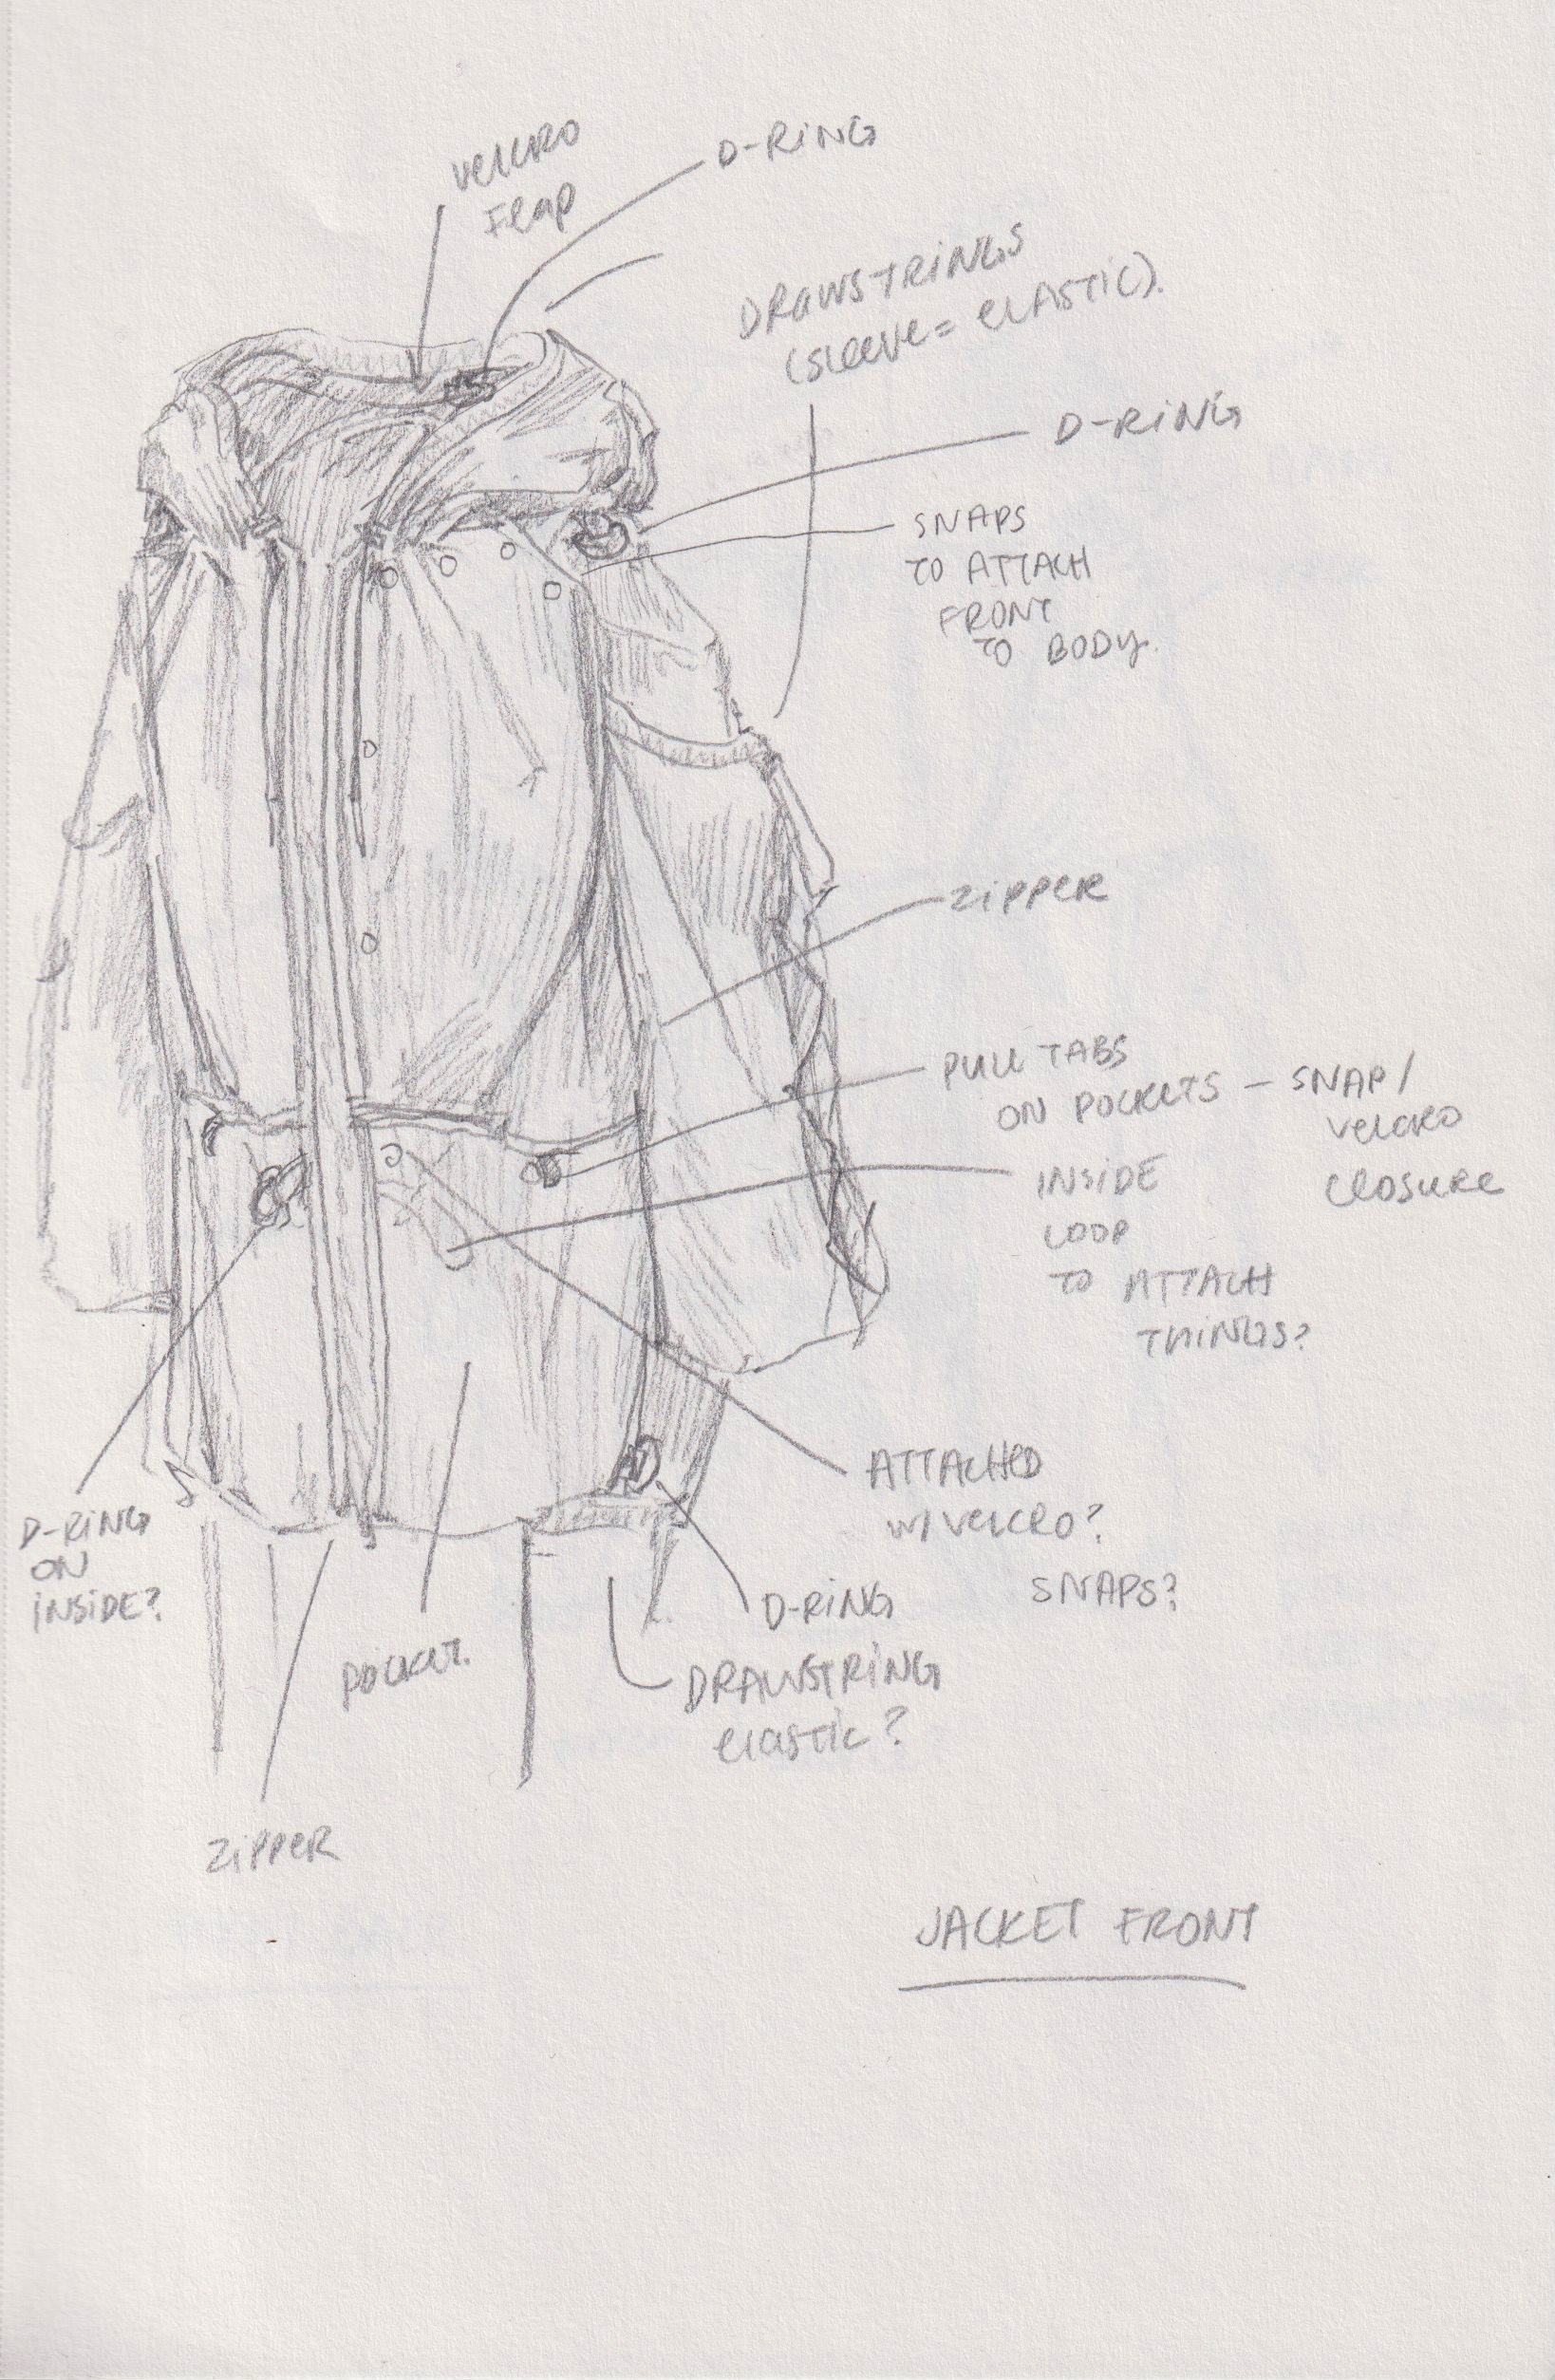 VELCRO
FLAP
D-RING
DRAWSTRINGS
(SLEEVE = ELASTIC).
D-RING
SNAPS
TO ATTACH
FRONT
TO BODY.
ZIPPER
PULL TABS
ON POCKETS — SNAP/
VELCRO
CLOSURE
INSIDE
LOOP
TO ATTACH
THINGS?
ATTACHED
W/VELCRO?
SNAPS?
D-RING
ON
INSIDE?
D-RING
POCKET.
DRAWSTRING
ELASTIC?
ZIPPER
JACKET FRONT